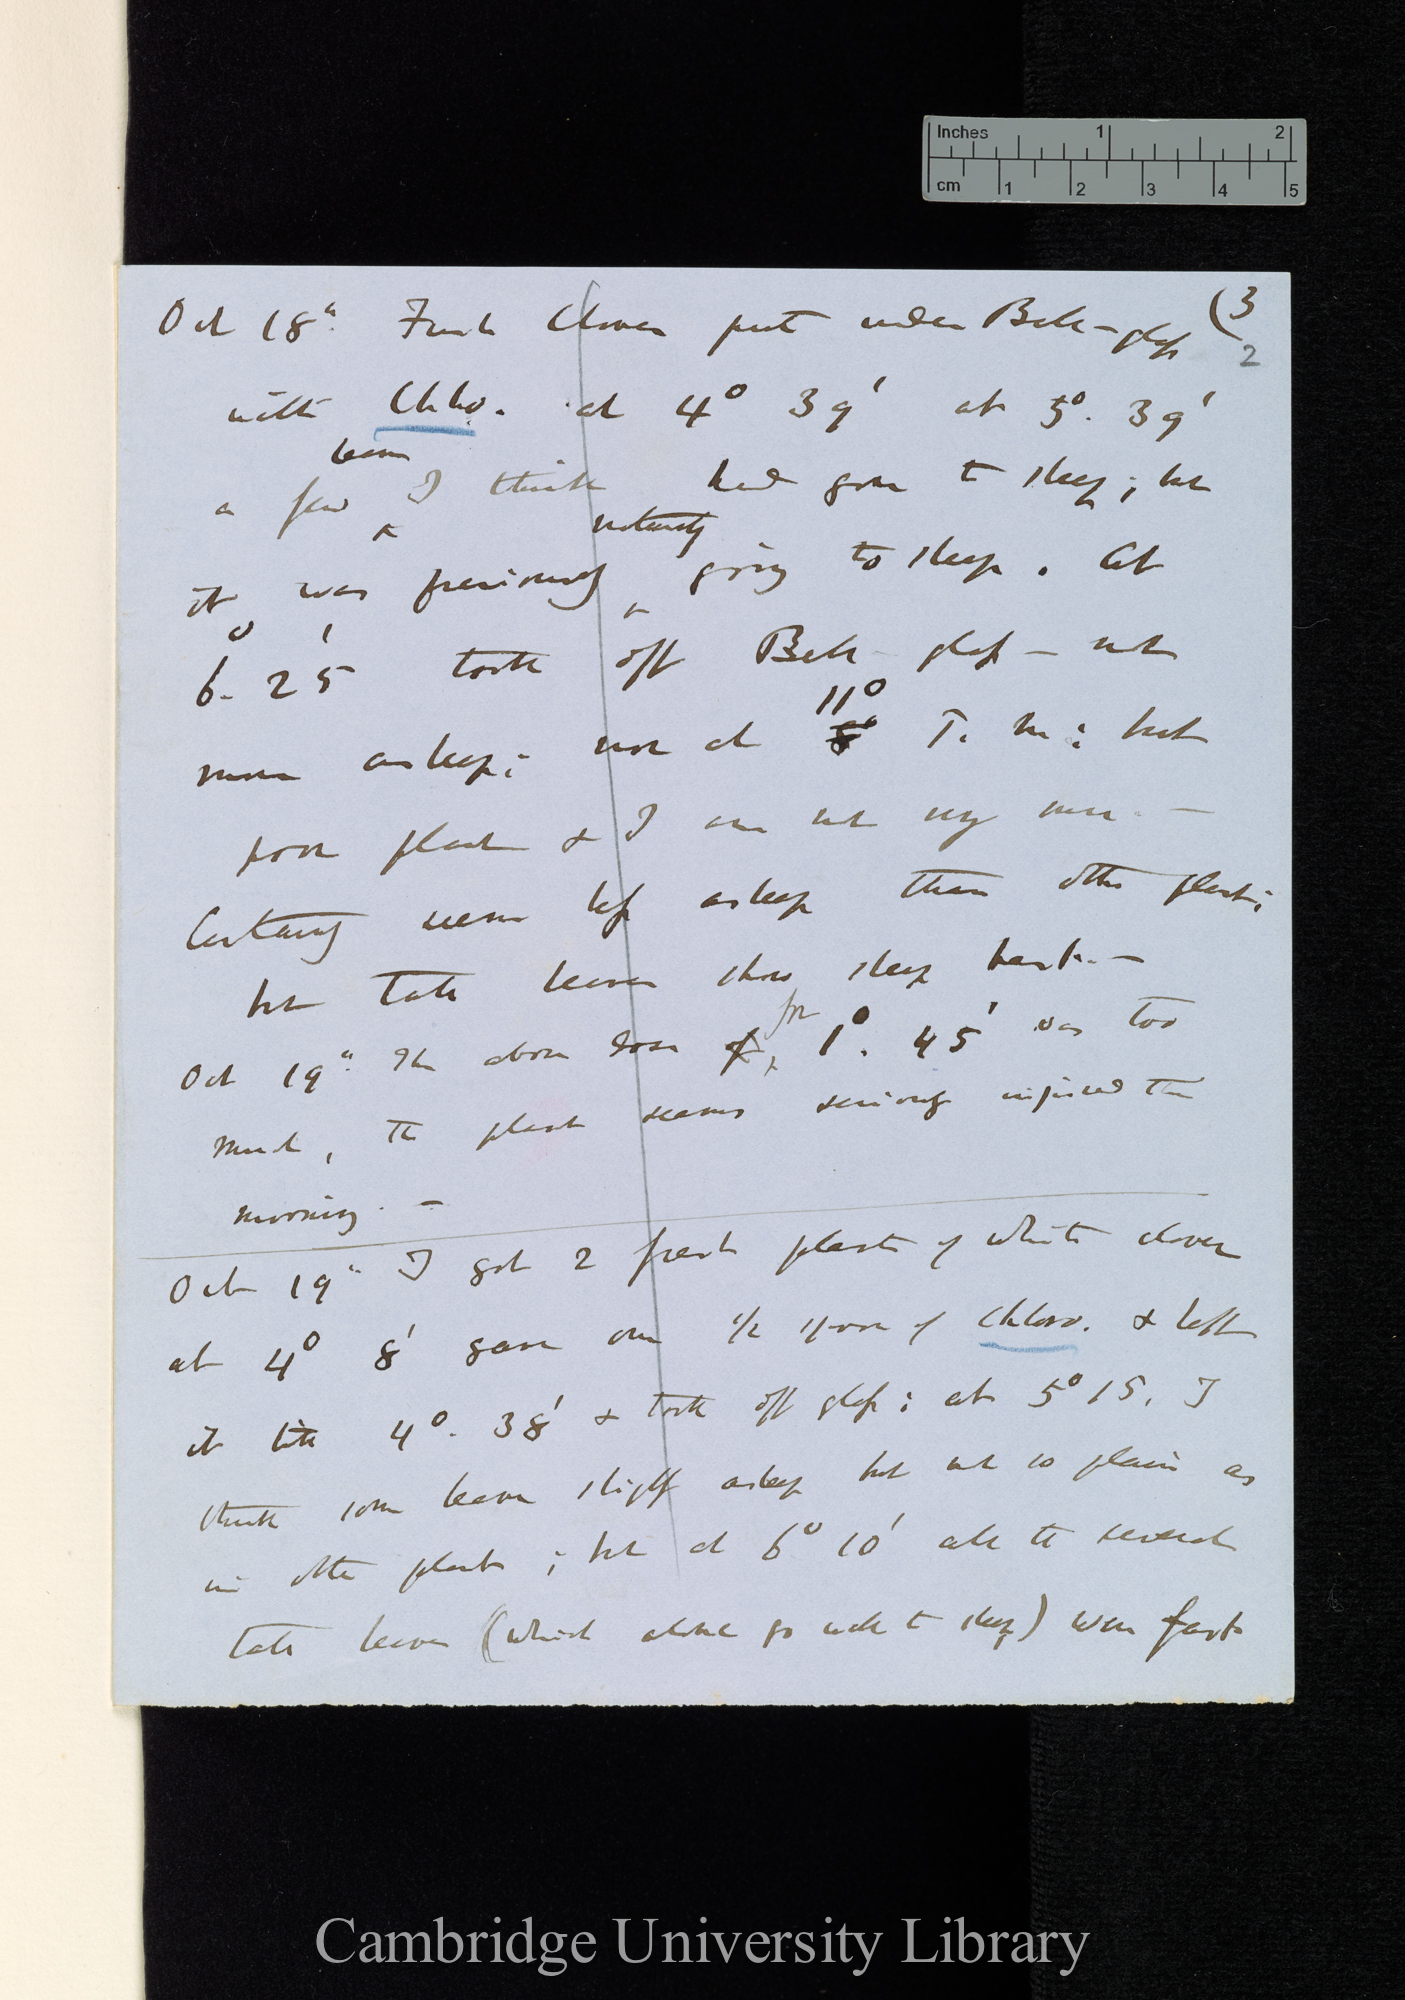 Inches 1 2
cm 1 2 3 4 5
(3
2
Oct 18th Fresh Clover put under Bell-glass
with Chlo. at 4° 39' at 5°. 39'
leaves
a few ^ I think had gone to sleep; but
naturally
it was previously ^ going to sleep. At
6°. 25' took off Bell-glass — not
11°
more asleep; nor at 8° P. M.; but
poor plant & I am not very sure. —
Certainly seems less asleep than other plant;
but tall leaves show sleep best. —
for
Oct 19th The above dose of ^ 1°. 45' was too
much, the plant seems seriously injured this
morning. —
Oct 19th I got 2 fresh plants of white clover
at 4° 8' gave one 1/2 spoon of Chloro. & left
it till 4°. 38' & took off glass; at 5° 15. I
think some leaves slightly asleep but not so plain as
in other plants; but at 6° 10' all the several
tall leaves (which alone go well to sleep) were fast
Cambridge University Library